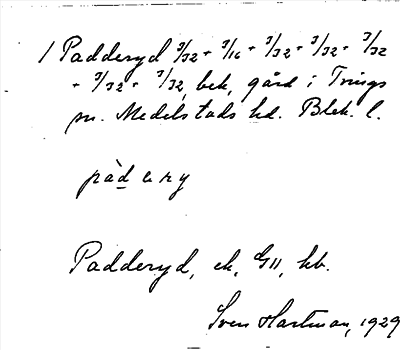 1 Padderyd 3/32 + 3/16 + 3/32 + 3/32 + 3/32
+ 3/32 + 3/32, bek, gård i Tvings
sn. Medelstads hd. Blek. l.
pàd e r y
Padderyd, ek, GII, kb.
Sven Hartman, 1929